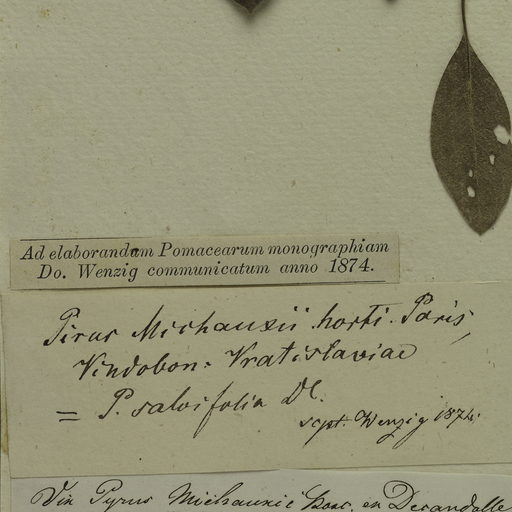 Ad elaborandam Pomacearum monographiam
Do. Wenzig communicatum anno 1874.
Pirus Michauxii horti. Paris,
Vindobon: Vratislaviae
= P. salvifolia Dl.
scpt. Wenzig 1874.
Pyrus Michauxii Bosc. en Decandolle